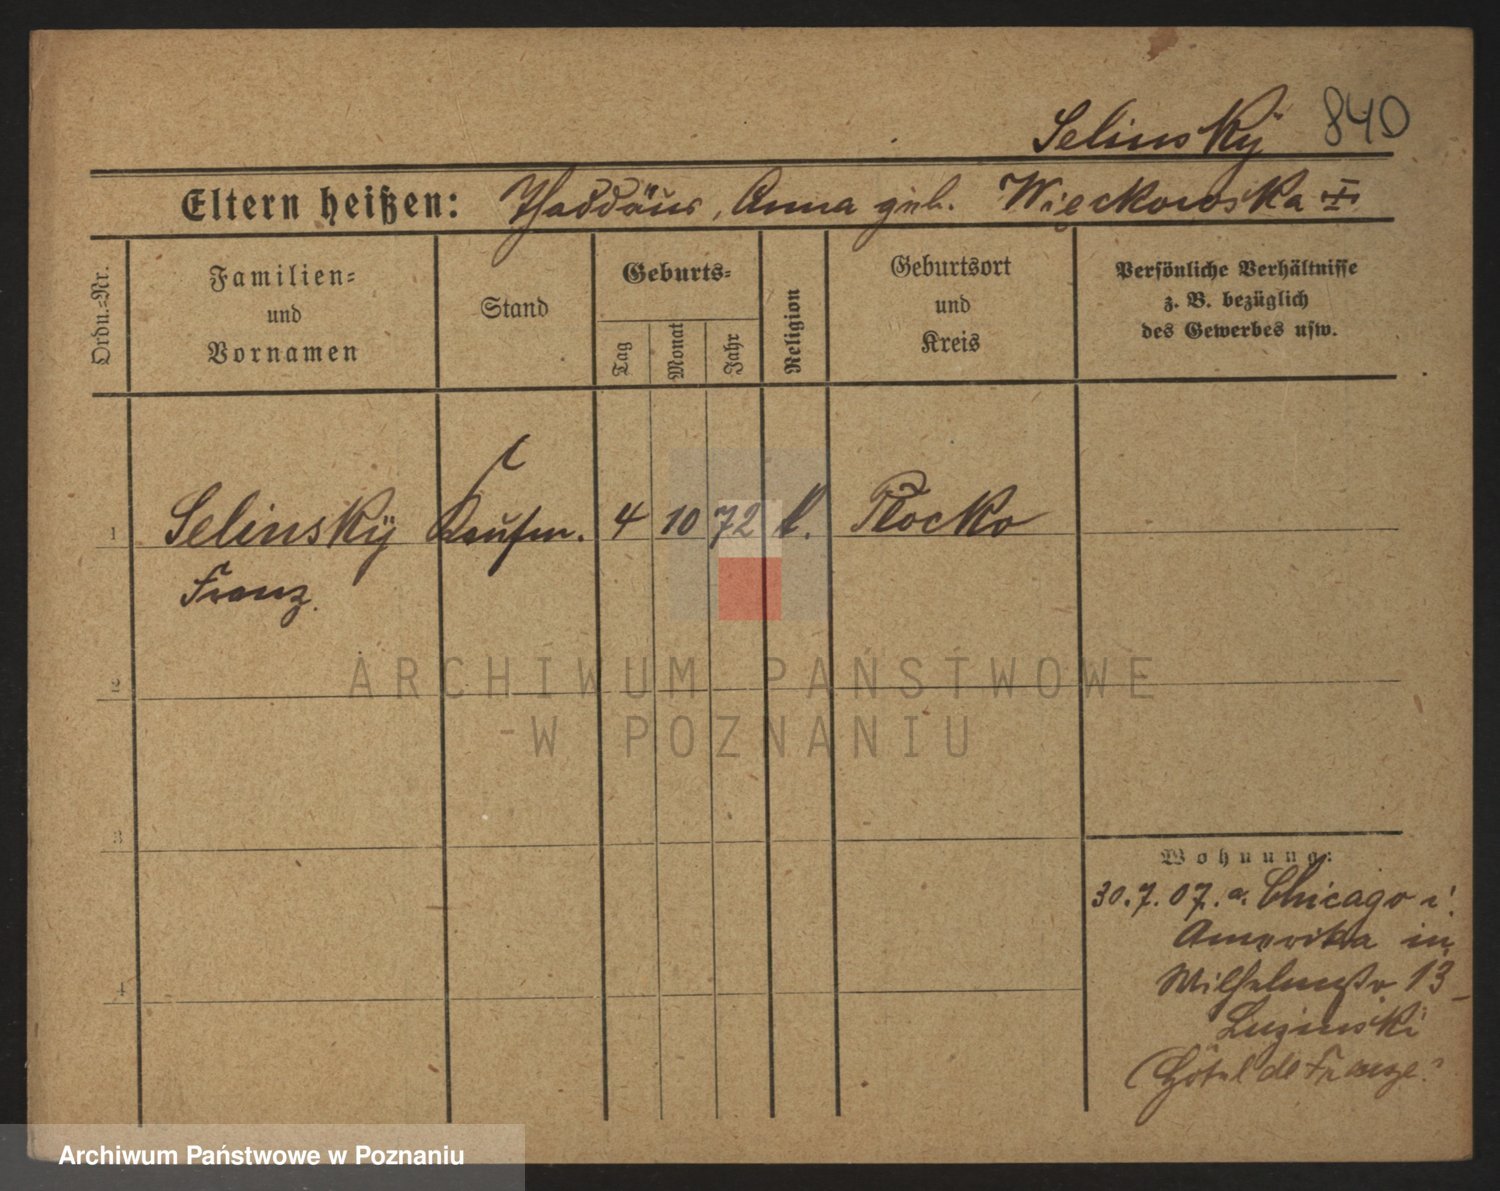 Selinsky 840
Eltern heißen: Thaddäus, Anna geb. Więckowska
Ordn.-Nr.
Familien-
und
Vornamen
Stand
Geburts-
Tag
Monat
Jahr
Religion
Geburtsort
und
Kreis
Persönliche Verhältnisse
z. B. bezüglich
des Gewerbes usw.
1 Selinsky Kaufm. 4 10 72 k. Plocko
Franz
2
3
4
Wohnung:
30.7.07. a. Chicago i.
Amerika in
Wilhelmstr 13
Luzinski
(Hôtel de France)
ARCHIWUM PAŃSTWOWE
W POZNANIU
Archiwum Państwowe w Poznaniu